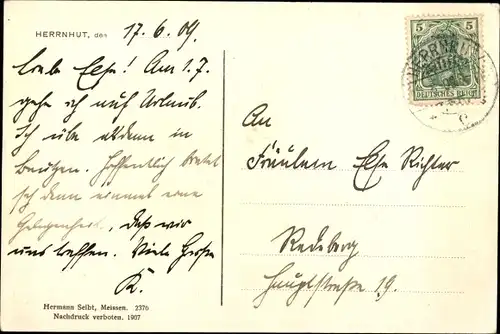 HERRNHUT, den 17.6.09.
Liebe Else! Am 1.7.
gehe ich auf Urlaub.
Ich übe alsdann in
Bautzen. Hoffentlich bietet
sich dann einmal eine
Gelegenheit, daß wir
uns treffen. Viele Grüße
K.
Hermann Seibt, Meissen. 2376
Nachdruck verboten. 1907
5 5
DEUTSCHES REICH
An
Fräulein Else Richter
Radeberg
Hauptstraße 19.